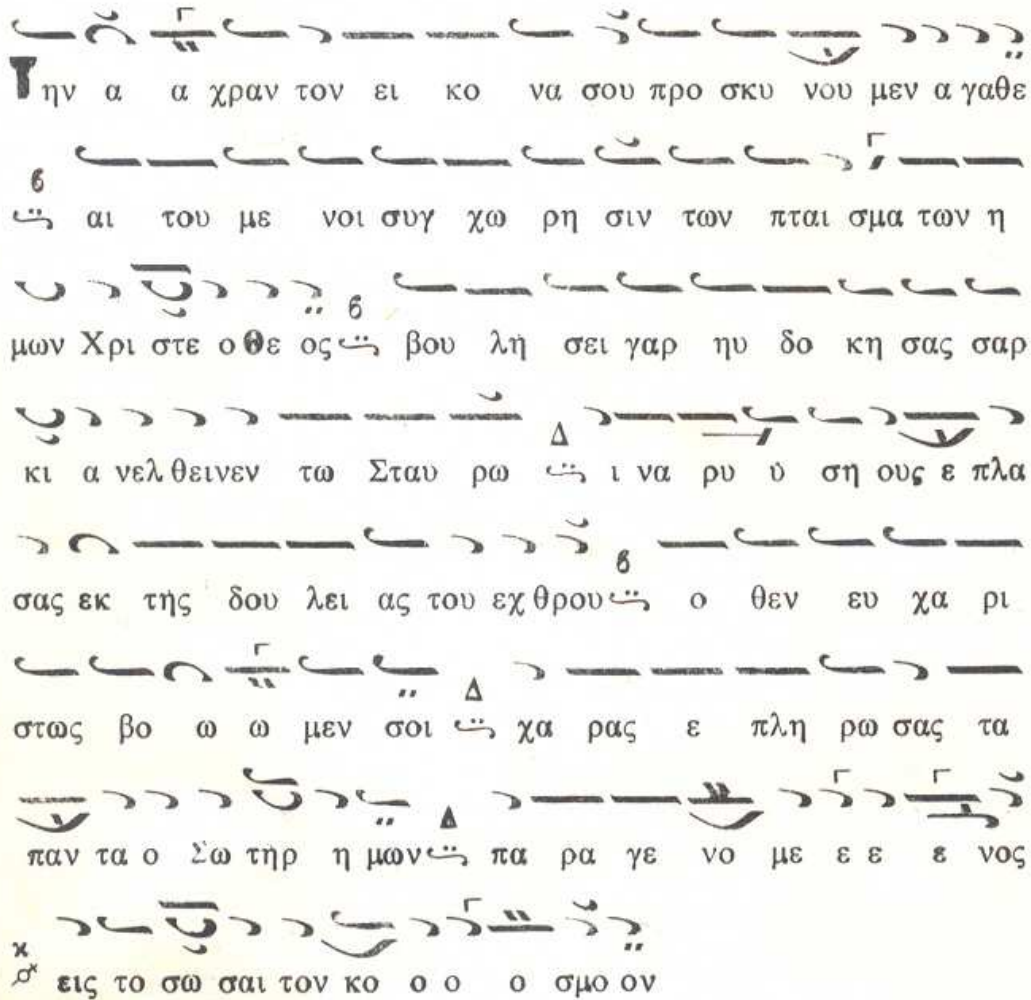 Την α α χραν τον ει κο να σου προ σκυ νου μεν α γαθε
αι του με νοι συγ χω ρη σιν των πται σμα των η
μων Χρι στε ο Θε ος βου λη σει γαρ ηυ δο κη σας σαρ
κι α νελ θειν εν τω Σταυ ρω Δ ι να ρυ υ ση ους ε πλα
σας εκ της δου λει ας του εχ θρου ο θεν ευ χα ρι
στως βο ω ω μεν σοι Δ χα ρας ε πλη ρω σας τα
παν τα ο Σω τηρ η μων Δ πα ρα γε νο με ε ε ε νος
εις το σω σαι τον κο ο ο ο σμο ον